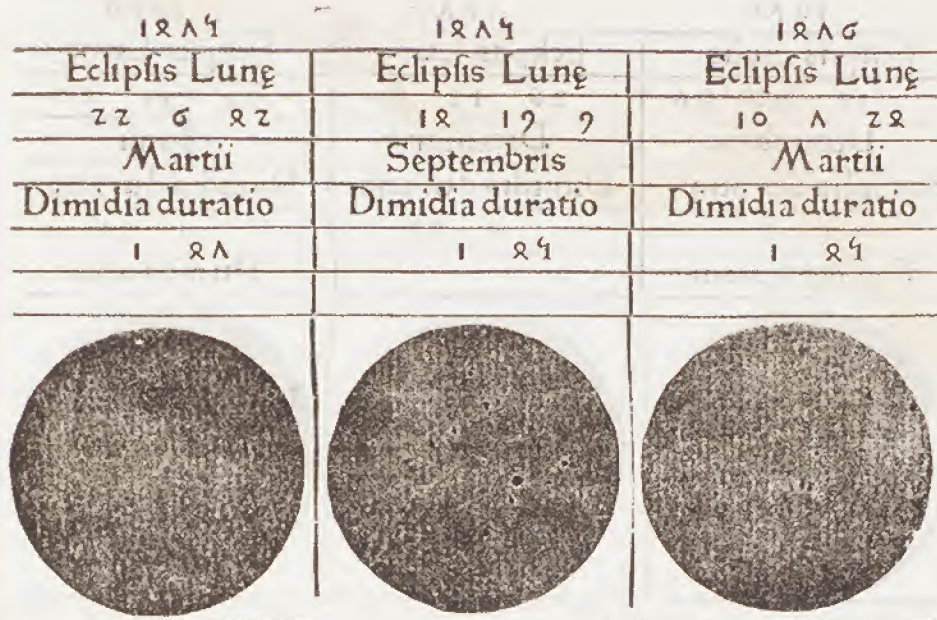 1475 1475 1476
Eclipſis Lunę Eclipſis Lunę Eclipſis Lunę
22 6 42 14 19 9 10 7 24
Martii Septembris Martii
Dimidia duratio Dimidia duratio Dimidia duratio
1 47 1 45 1 45